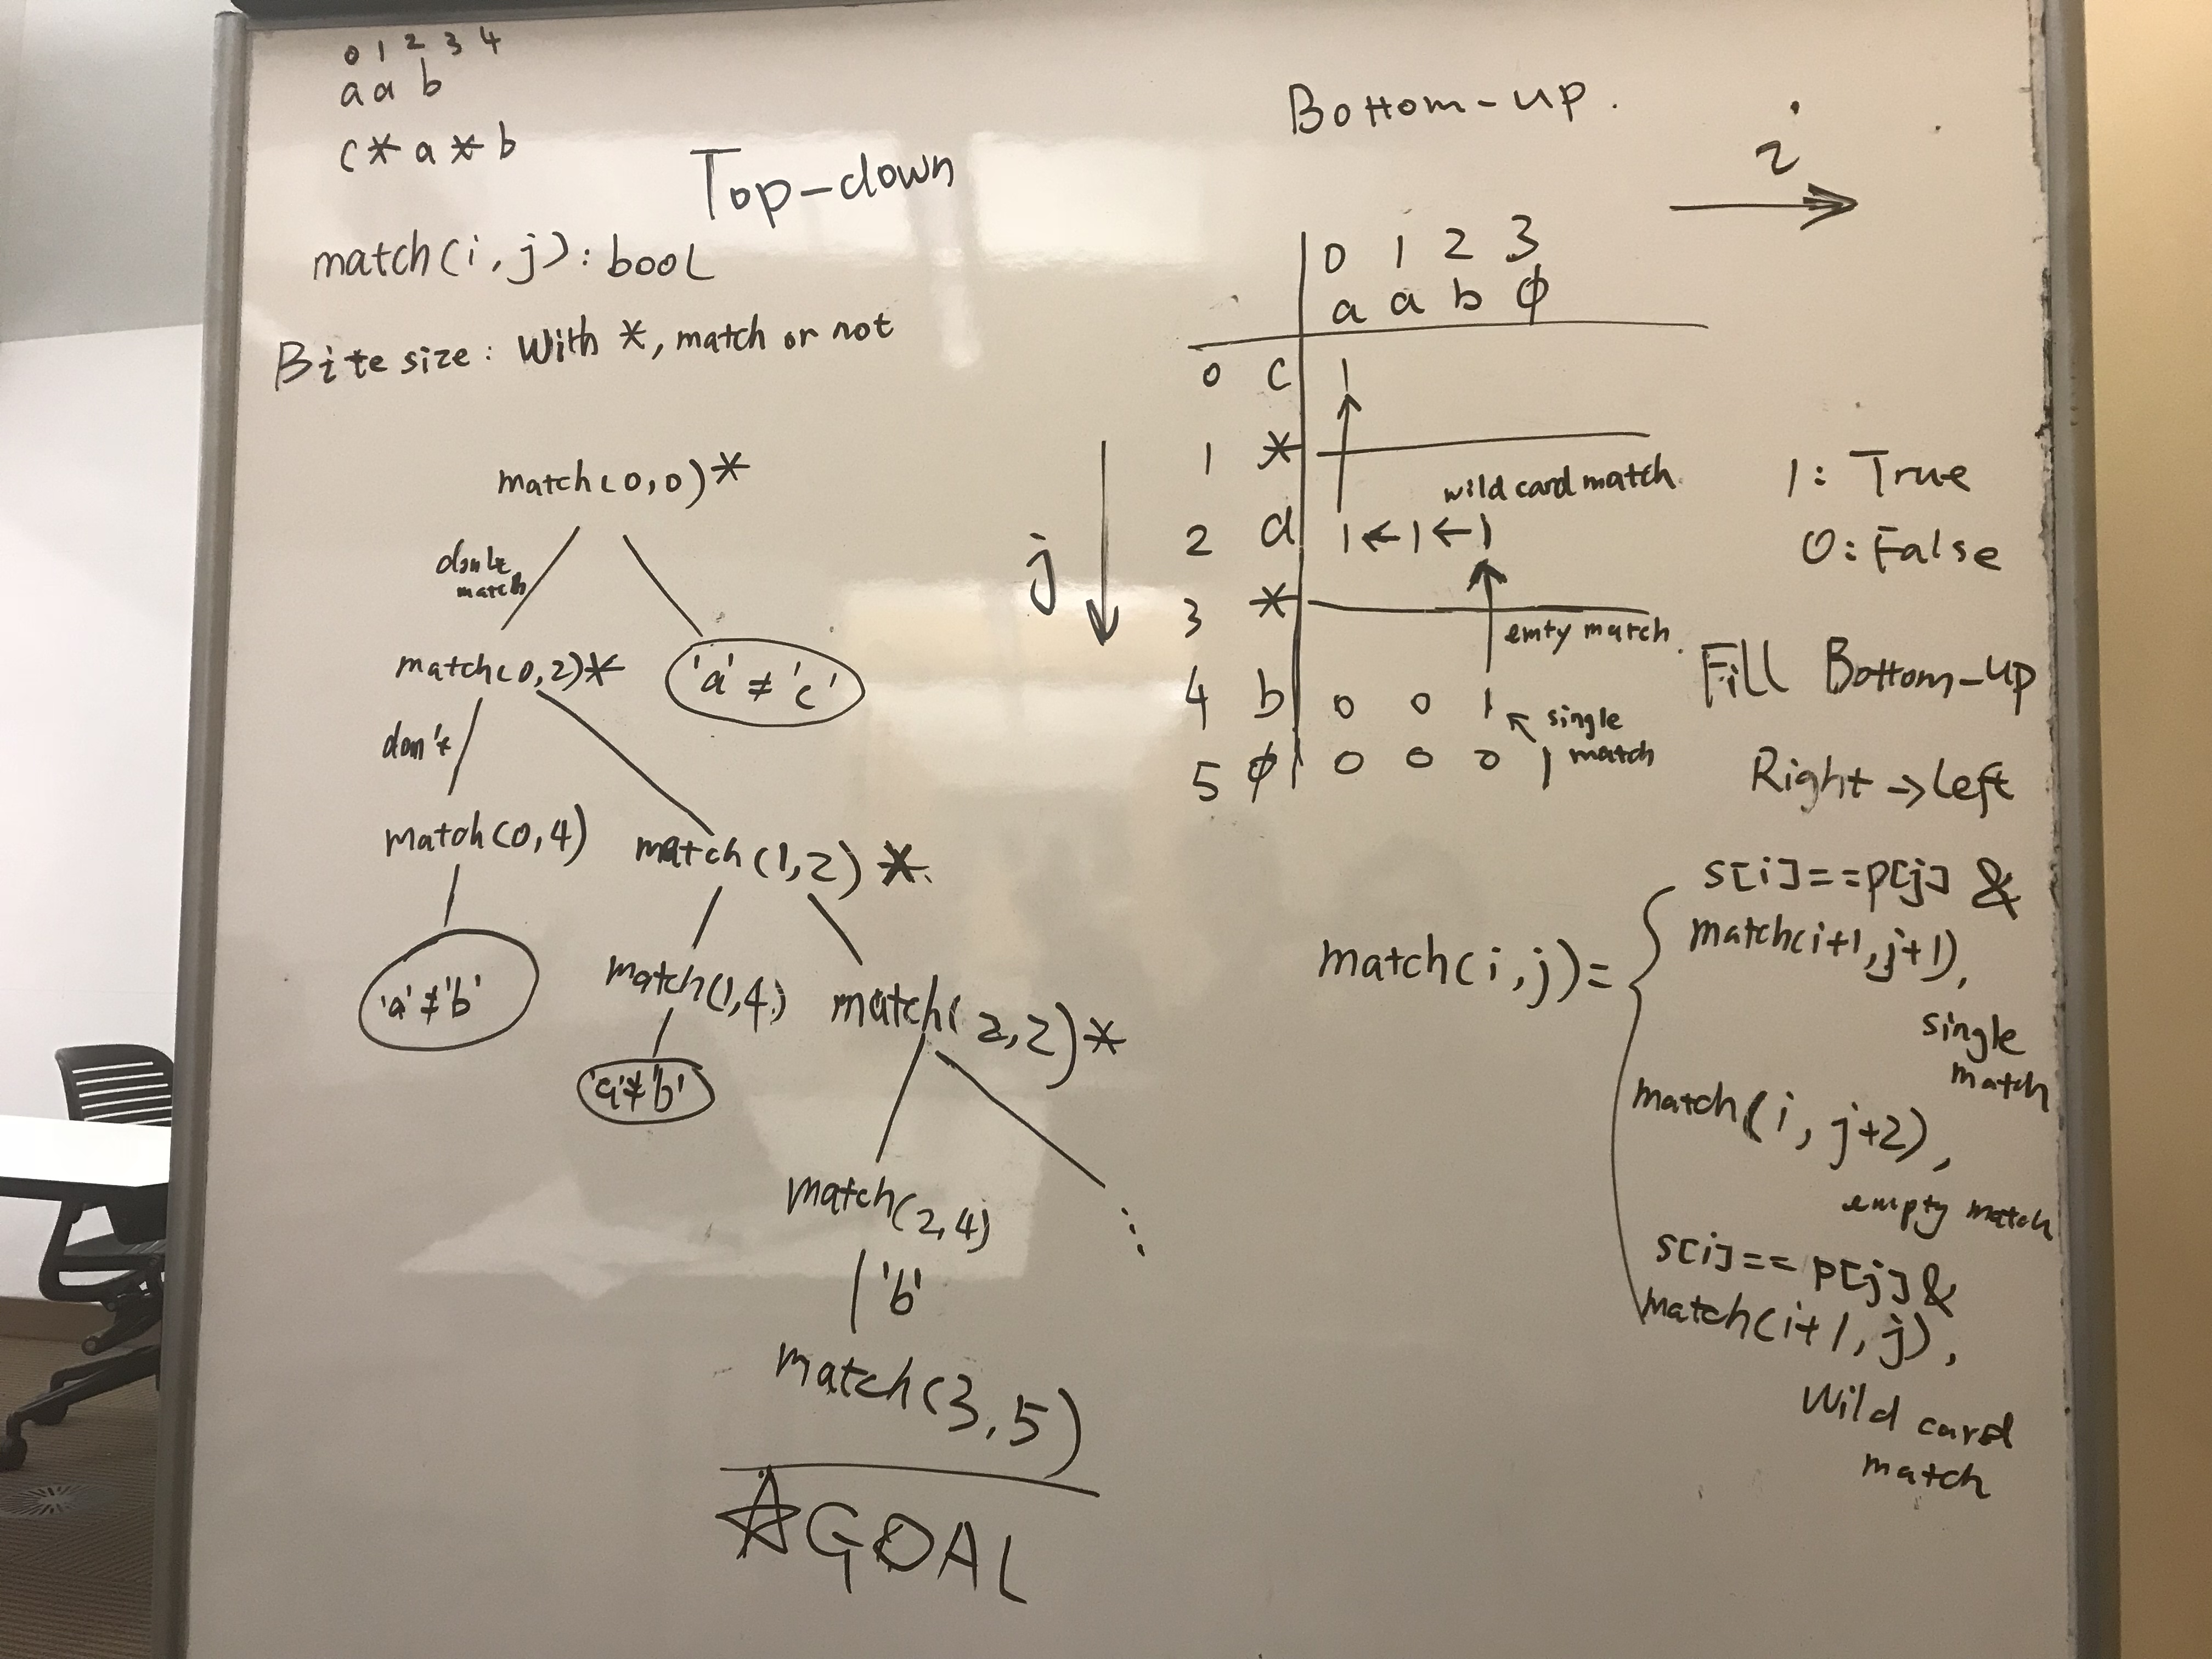 0 1 2 3 4
aa b
c* a * b
Top-down
match(i,j): bool
Bite size: With *, match or not
match(0,0)*
don't
match
match(0,2)*
'a' ≠ 'c'
don't
match(0,4)
match(1,2)*
'a' ≠ 'b'
match(1,4)
match(2,2)*
'a' ≠ 'b'
match(2,4)
'b'
match(3,5)
GOAL
Bottom-up.
i
0 1 2 3
a a b ϕ
0 c 1
1 *
wild card match
j
2 a 1←1←1
3 *
emty match
4 b 0 0 1
single
match
5 ϕ 0 0 0 1
1: True
0: False
Fill Bottom-up
Right → Left
match(i,j)=
s[i]==p[j] &
match(i+1,j+1),
single
match
match(i, j+2),
empty match
s[i]== p[j]&
match(i+1,j),
Wild card
match